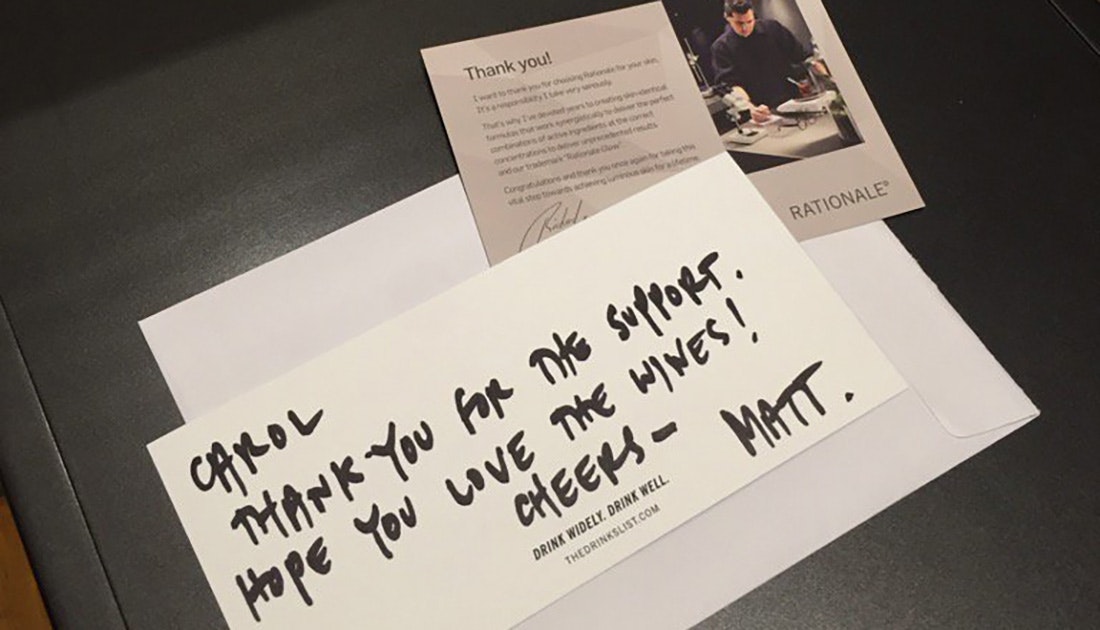 Thank you!
I want to thank you for choosing Rationale for your skin.
It's a responsibility I take very seriously.
That's why I've devoted years to creating skin-identical
formulas that work synergistically to deliver the perfect
combinations of active ingredients at the correct
concentrations to deliver unprecedented results
and our trademark "Rationale Glow".
Congratulations and thank you once again for taking this
vital step towards achieving luminous skin for a lifetime.
RATIONALE®
CAROL
THANK-YOU FOR THE SUPPORT.
HOPE YOU LOVE THE WINES!
CHEERS- MATT.
DRINK WIDELY. DRINK WELL.
THEDRINKSLIST.COM